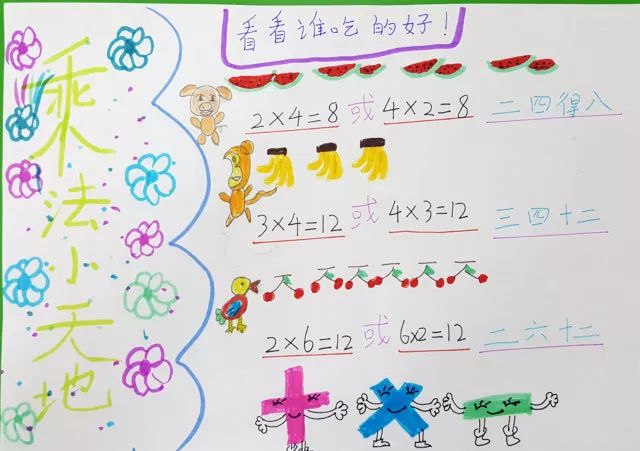 乘法小天地
看看谁吃的好！
2×4=8 或 4×2=8 二四得八
3×4=12 或 4×3=12 三四十二
2×6=12 或 6×2=12 二六十二